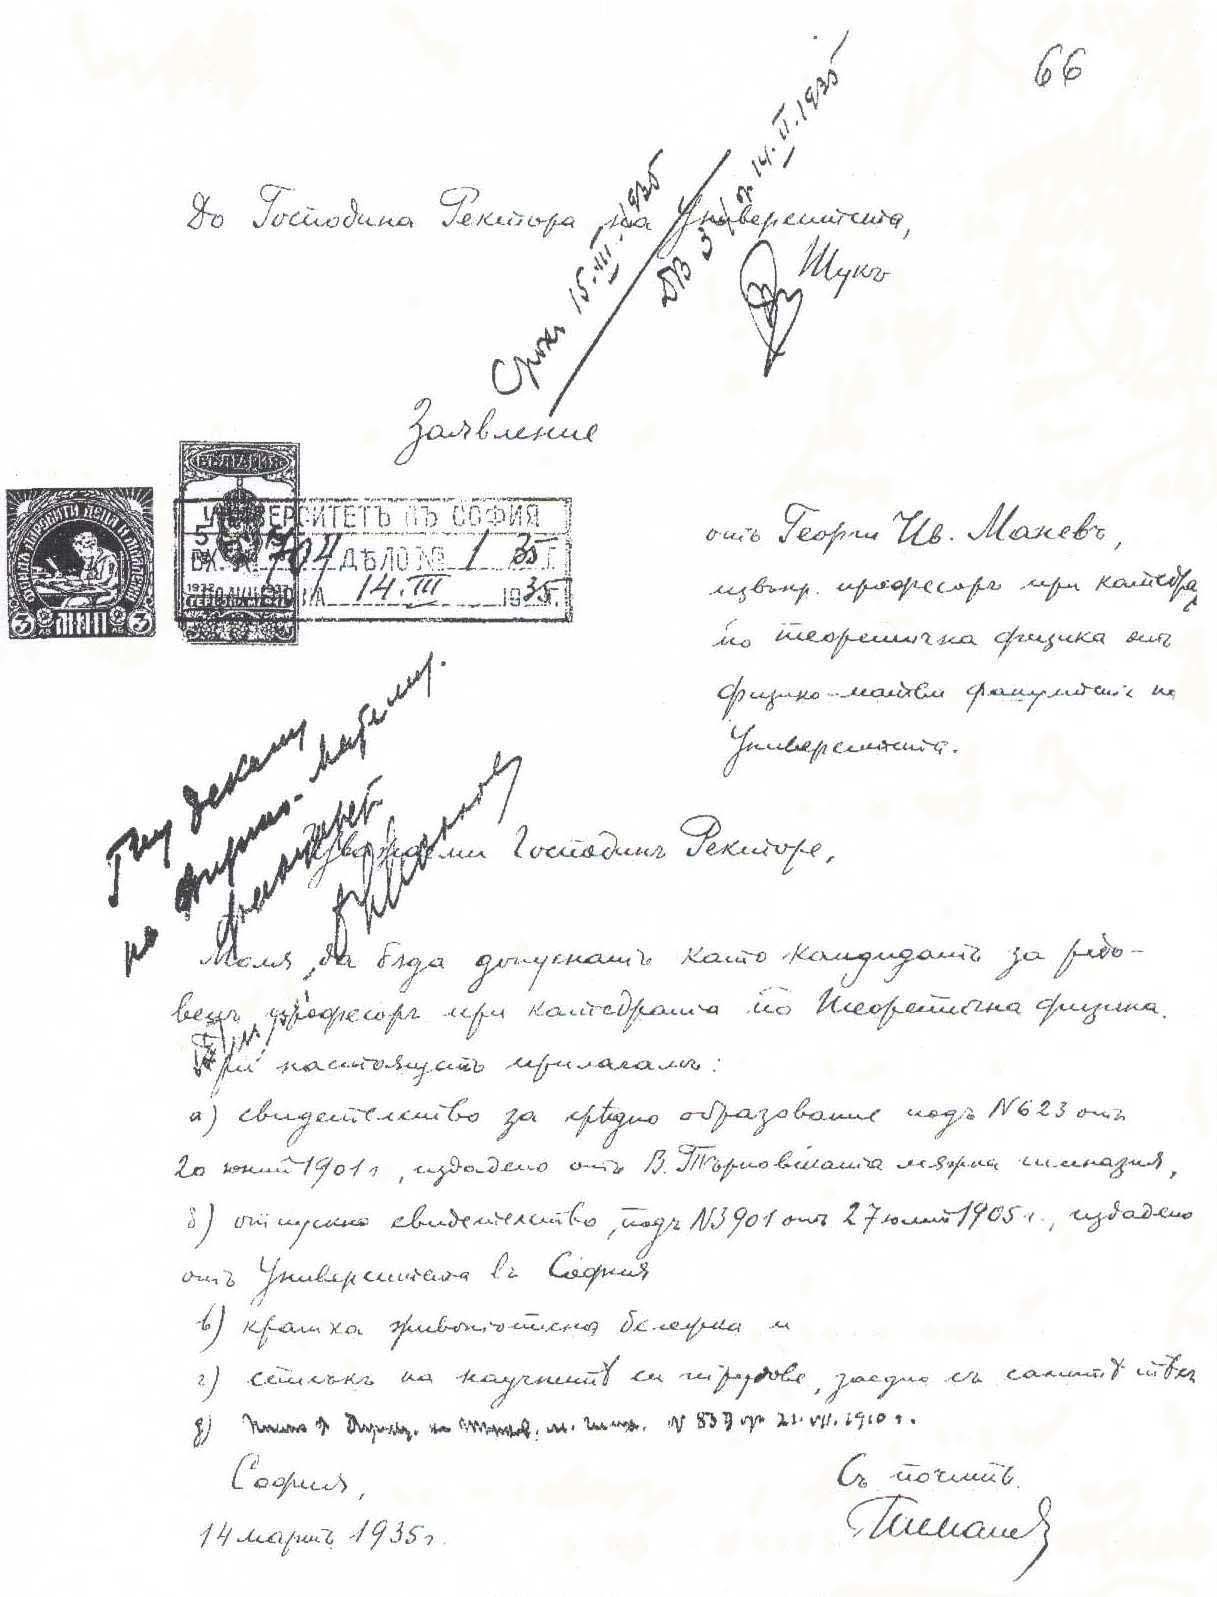 66
Срокъ 15.III.1935
ДВ 34 от 14.II.1935
До Господина Ректора на Университета,
Тукъ
Заявление
БЪЛГАРИЯ
3 лв МНП лв 3
УНИВЕРСИТЕТЪ ВЪ СОФИЯ
ВХ. № 704 ДѢЛО № 1 35 Г.
ПОЛУЧЕНО НА 14.III 1935 Г.
отъ Георги Ив. Маневъ,
извънр. професоръ при катедра
по теоретична физика отъ
физико-матем факултетъ на
Университета.
Г-ну Декану
на физико-матем.
факултет
Уважаеми Господинъ Ректоре,
Моля, да бѫда допуснатъ като кандидатъ за редо-
венъ професоръ при катедрата по Теоретична физика.
При настоящето прилагамъ:
а) свидетелство за срѣдно образование подъ N 623 отъ
20 юний 1901 г, издадено отъ В. Търновската мѫжка гимназия,
б) отпускно свидетелство, подъ N 3901 отъ 27 юлий 1905 г., издадено
отъ Университета въ София
в) кратка животописна бележка и
г) списъкъ на научнитѣ си трудове, заедно съ самитѣ тѣхъ
д) N 839 от 21.VII.1910 г.
София,
14 мартъ 1935 г.
Съ почитъ
Г. Ив. Маневъ